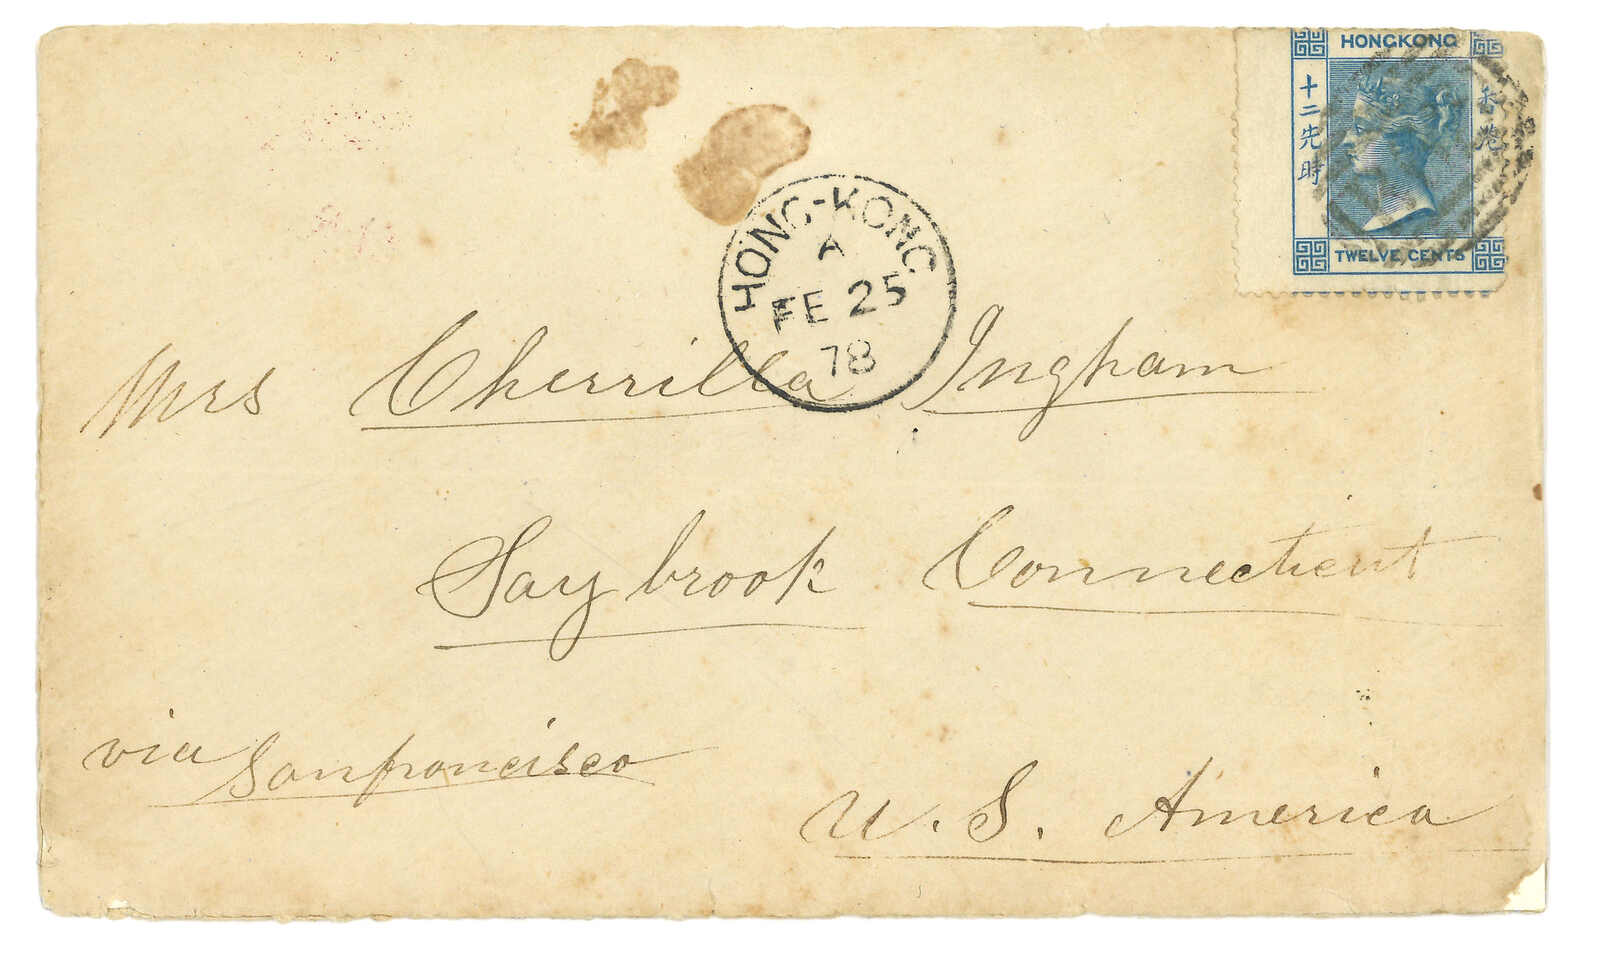 HONGKONG
十二先時
香港
TWELVE CENTS
HONG-KONG
A
FE 25
78
Mrs Cherrilla Ingham
Saybrook Connecticut
via Sanfrancisco
U. S. America